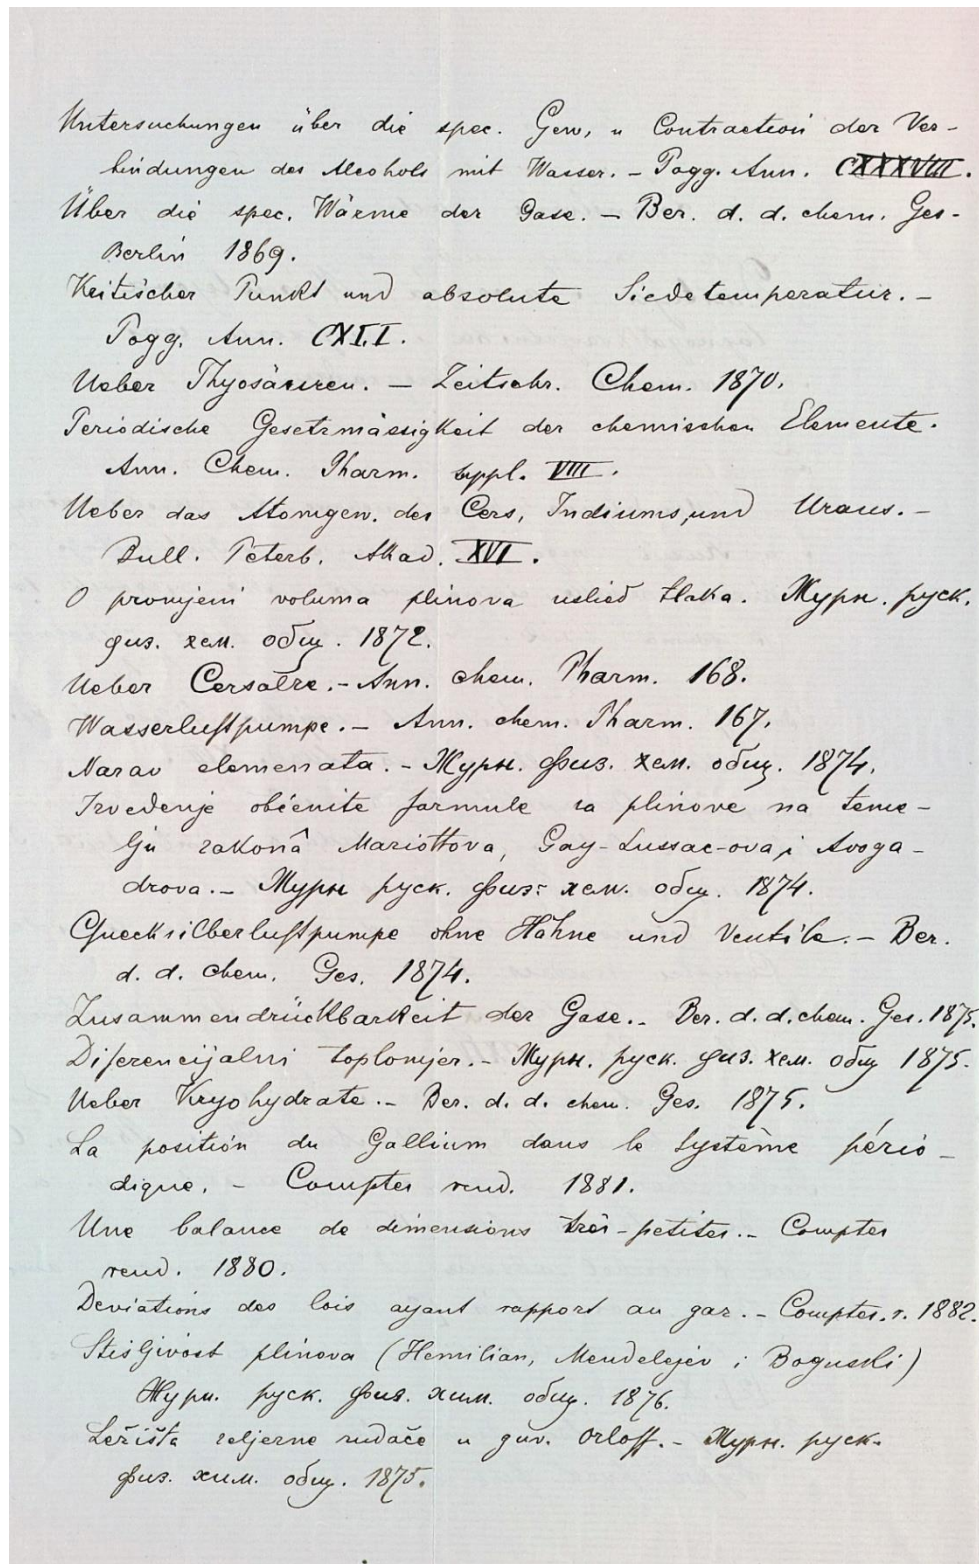 Untersuchungen über die spec. Gew. u Contraction der Ver-
bindungen des Alcohols mit Wasser. - Pogg. Ann. CXXXVIII.
Über die spec. Wärme der Gase. - Ber. d. d. chem. Ges-
Berlin 1869.
Kritischer Punkt und absolute Siedetemperatur. -
Pogg. Ann. CXLI.
Ueber Thyosäuren. - Zeitschr. Chem. 1870.
Periodische Gesetzmässigkeit der chemischen Elemente.
Ann. Chem. Pharm. suppl. VIII.
Ueber das Atomgew. des Cers, Indiums, und Urans. -
Bull. Peterb. Akad. XVI.
O promjeni voluma plinova uslied tlaka. Журн. руск.
физ. хем. общ. 1872.
Ueber Cersalze. - Ann. chem. Pharm. 168.
Wasserluftpumpe. - Ann. chem. Pharm. 167.
Narav elemenata. - Журн. физ. хем. общ. 1874.
Izvedenje obćenite formule za plinove na teme-
lju zakonâ Mariottova, Gay-Lussac-ova i Avoga-
drova. - Журн руск. физ- хем. общ. 1874.
Quecksilberluftpumpe ohne Hähne und Ventile. - Ber.
d. d. chem. Ges. 1874.
Zusammendrückbarkeit der Gase. - Ber. d. d. chem. Ges. 1875.
Diferencijalni toplomjer. - Журн. руск. физ. хем. общ 1875.
Ueber Kryohydrate. - Ber. d. d. chem. Ges. 1875.
La position du Gallium dans le système pério-
dique. - Comptes rend. 1881.
Une balance de dimensions très-petites. - Comptes
rend. 1880.
Deviations des lois ayant rapport au gaz. - Comptes. r. 1882.
Stisljivost plinova (Hemilian, Mendelejev i Boguski)
Журн. руск. физ. хим. общ. 1876.
Ležišta željezne rudače u guv. Orloff. - Журн. руск.
физ. хим. общ. 1875.